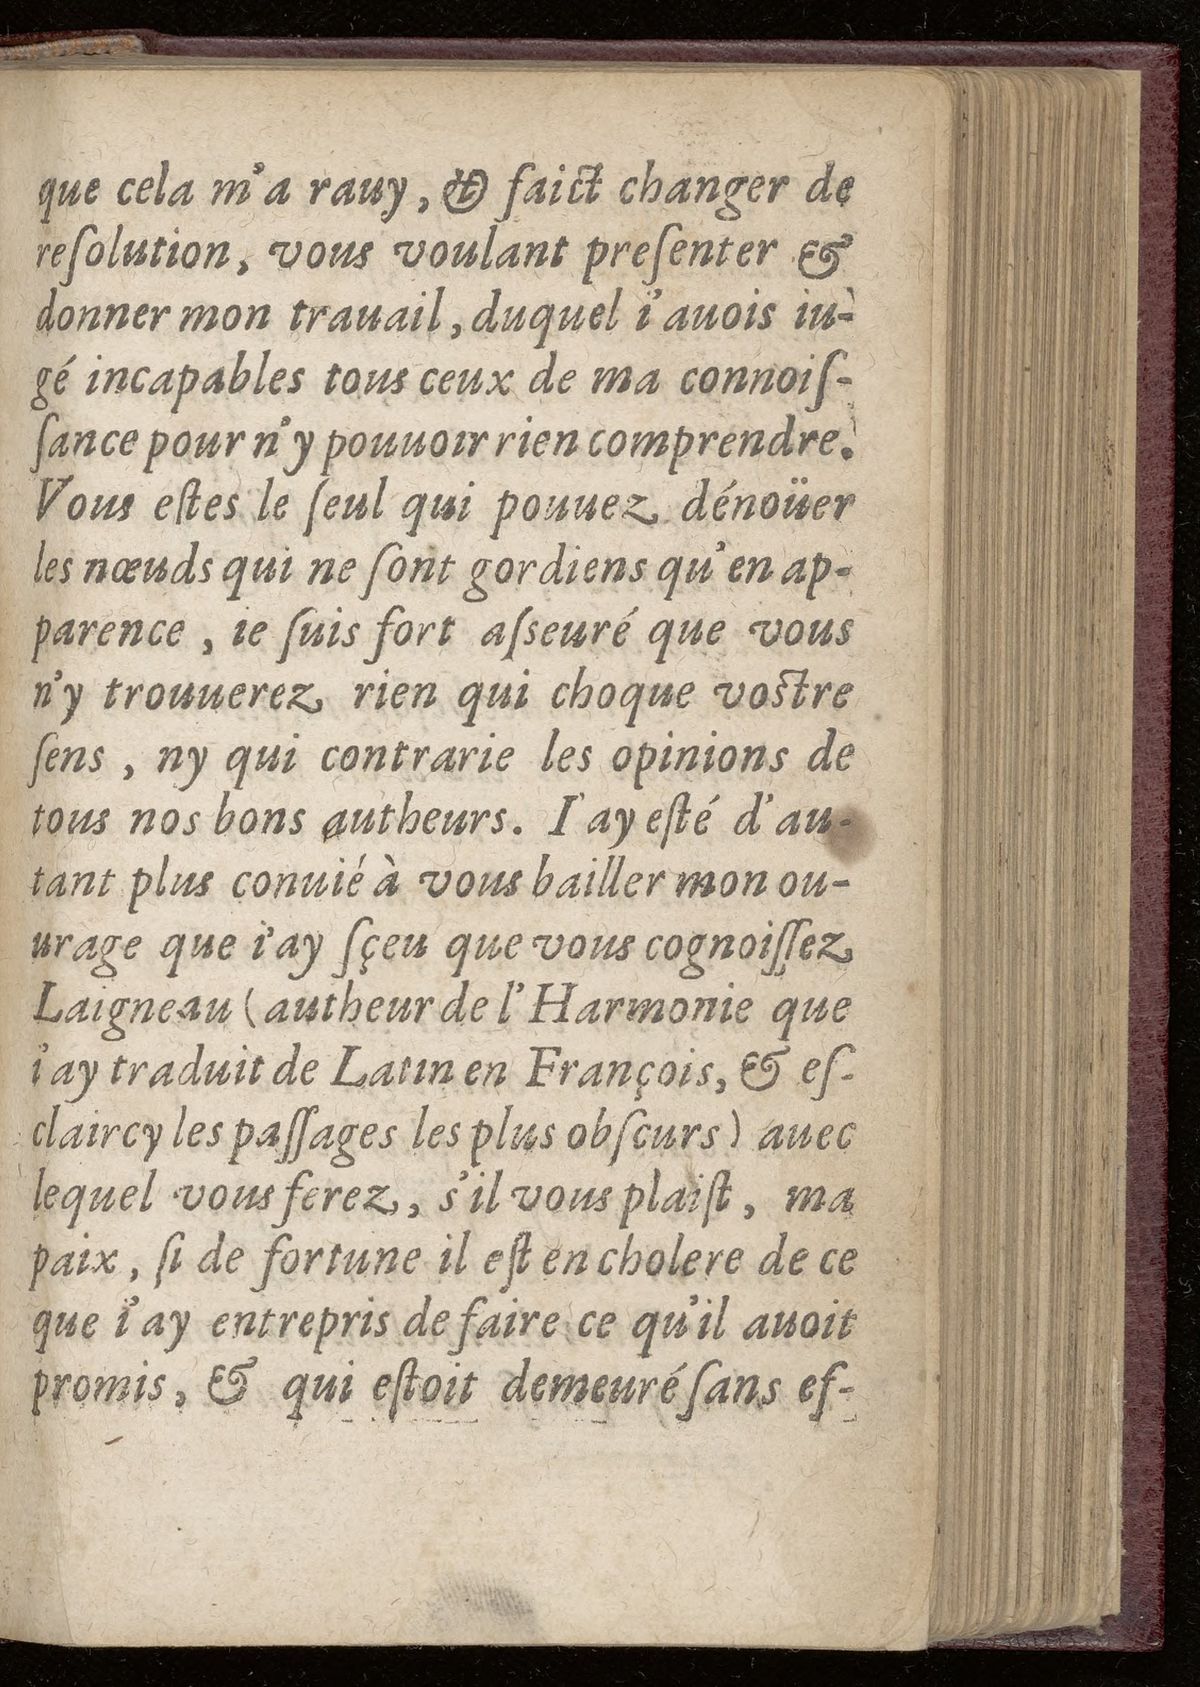 que cela m'a rauy, & faict changer de
reſolution, vous voulant preſenter &
donner mon trauail, duquel i'auois iu-
gé incapables tous ceux de ma connoiſ-
ſance pour n'y pouuoir rien comprendre.
Vous eſtes le ſeul qui pouuez dénoüer
les nœuds qui ne ſont gordiens qu'en ap-
parence, ie ſuis fort aſseuré que vous
n'y trouuerez rien qui choque vostre
ſens, ny qui contrarie les opinions de
tous nos bons autheurs. I'ay eſté d'au-
tant plus conuié à vous bailler mon ou-
urage que i'ay ſçeu que vous cognoiſſez
Laigneau (autheur de l'Harmonie que
i'ay traduit de Latin en François, & eſ-
claircy les paſſages les plus obſcurs) auec
lequel vous ferez, s'il vous plaiſt, ma
paix, ſi de fortune il eſt en cholere de ce
que i'ay entrepris de faire ce qu'il auoit
promis, & qui eſtoit demeuré ſans ef-